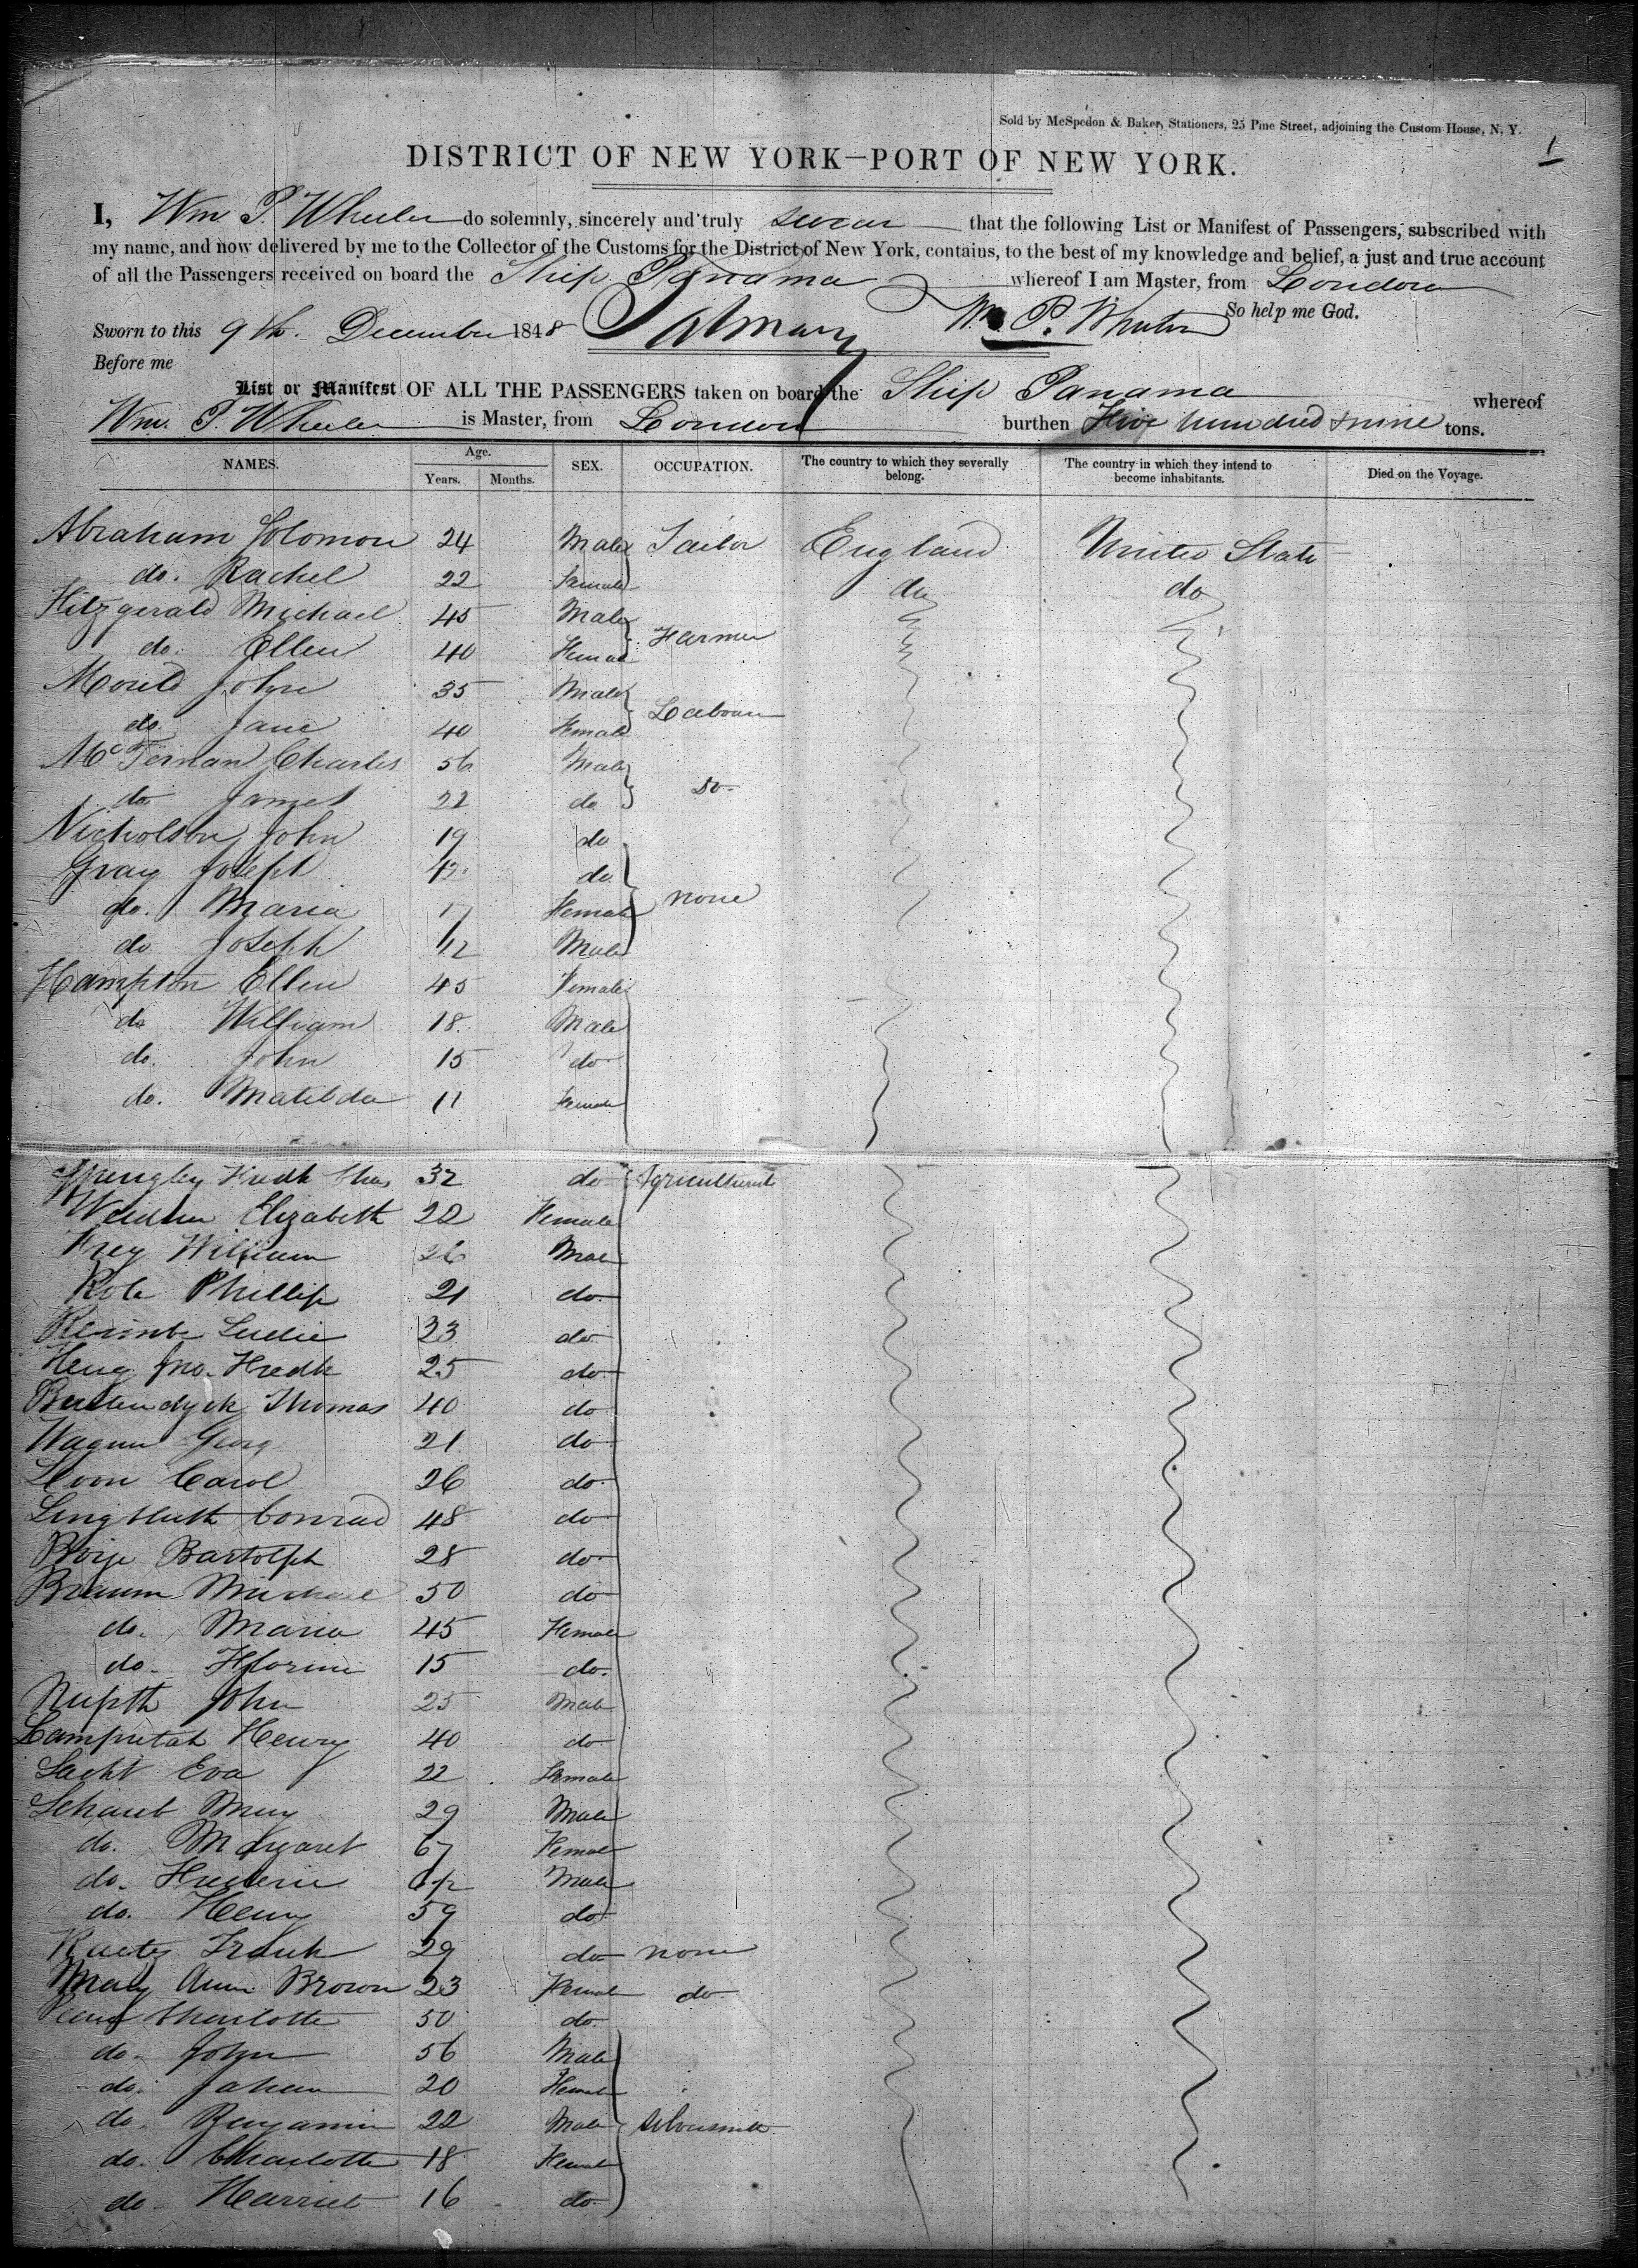 Sold by McSpedon & Baker, Stationers, 25 Pine Street, adjoining the Custom House, N. Y.
1
DISTRICT OF NEW YORK—PORT OF NEW YORK.
I, Wm P. Wheeler do solemnly, sincerely and truly swear that the following List or Manifest of Passengers, subscribed with
my name, and now delivered by me to the Collector of the Customs for the District of New York, contains, to the best of my knowledge and belief, a just and true account
of all the Passengers received on board the Ship Panama whereof I am Master, from London
So help me God.
Sworn to this 9th. December 1848
Before me
List or Manifest OF ALL THE PASSENGERS taken on board the Ship Panama whereof
Wm. P. Wheeler is Master, from London burthen Five hundred & nine tons.
NAMES. Age. SEX. OCCUPATION. The country to which they severally belong. The country in which they intend to become inhabitants. Died on the Voyage.
Years. Months.
Abraham Solomon 24 Male Tailor England United State
do. Rachel 22 Female do do
Fitzgerald Michael 45 Male
do. Ellen 40 Female Farmer
Mould John 35 Male
do Jane 40 Female Labour
McTernan Charles 56 Male
do James 22 do do
Nicholson John 19 do
Gray Joseph do
do. Maria Female none
do Joseph 1/12 Male
Hampton Ellen 45 Female
do William 18 Male
do. John 15 do
do. Matilda 11 Female
Fredk Chas 32 do Agriculturist
Elizabeth 22 Female
Frey William 26 Male
Phillip 21 do
33 do
Jno. Fredk 25 do
Thomas 40 do
Georg 21 do
Carol 26 do
Conrad 48 do
Bartolph 28 do
Braum Michael 50 do
do. Maria 45 Female
do. 15 do.
John 25 Male
Henry 40 do
Eva 22 Female
Schaub 29 Male
do. Margaret 67 Female
do. Male
do. Henry 59 do
Frank 29 do none
Mary Ann Brown 23 Female do
Charlotte 50 do.
do. John 56 Male
do. 20 Female
do. Benjamin 22 Male Silversmith
do. Charlotte 18 Female
do Harriet 16 do